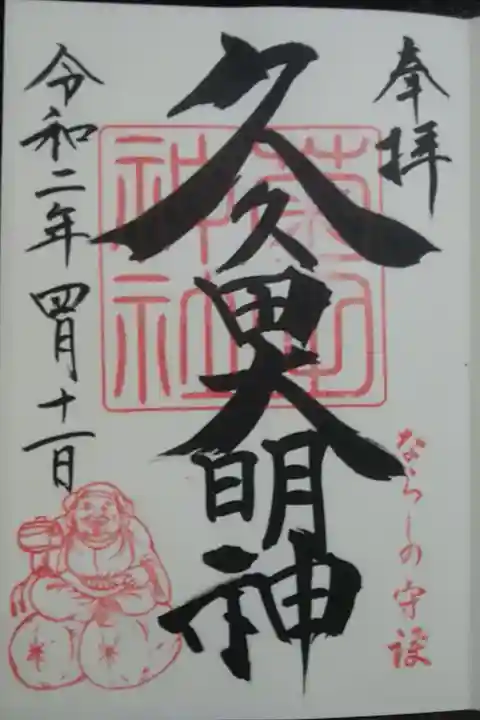 奉拝
ならしの守護
久久田大明神
菊田
神社
令和二年四月十一日